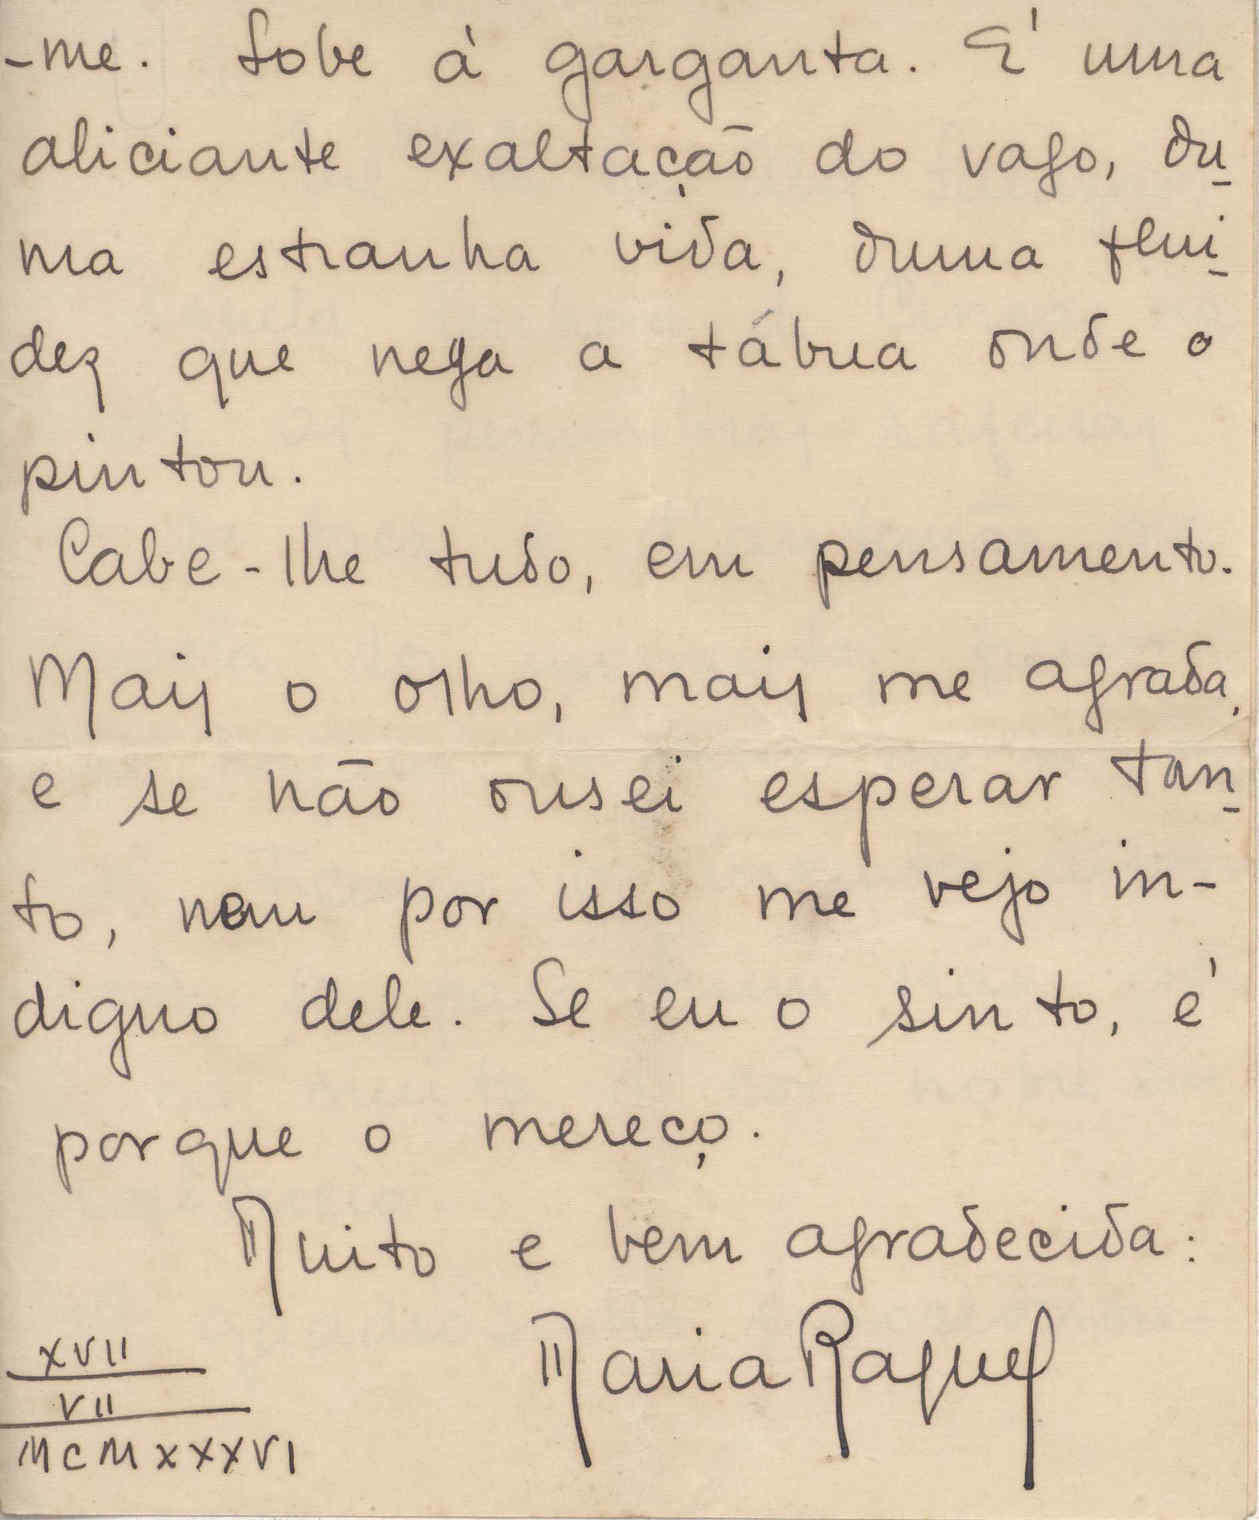 -me. Sobe à garganta. É uma
aliciante exaltação do vago, du-
ma estranha vida, duma flui-
dez que nega a tábua onde o
pintou.
Cabe-lhe tudo, em pensamento.
Mais o olho, mais me agrada,
e se não ousei esperar tan-
to, nem por isso me vejo in-
digno dele. Se eu o sinto, é
porque o mereço.
Muito e bem agradecida:
Maria Raquel
XVII
VII
MCMXXXVI